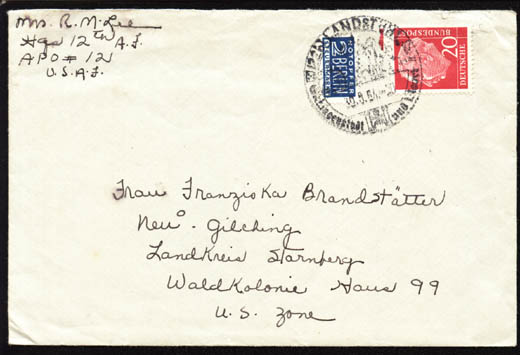 Mrs. R. M. Lee
Hqs 12th A.F.
APO # 12
U.S.A.F.
NOTOPFER
2 BERLIN
STEUERMARKE
20
DEUTSCHE
BUNDESPOST
LANDSTUHL
und Moorbad
Frau Franziska Brandstätter
Neu - Gilching
Landkreis Starnberg
Waldkolonie Haus 99
U.S. Zone